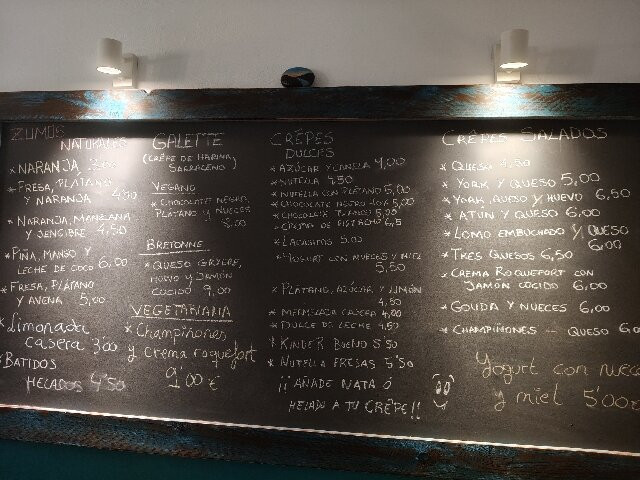 ZUMOS
NATURALES
* NARANJA 3,00
* FRESA, PLÁTANO
Y NARANJA 4,50
* NARANJA, MANZANA
Y JENGIBRE 4,50
* PIÑA, MANGO Y
LECHE DE COCO 6,00
* FRESA, PLÁTANO
Y AVENA 5,00
* Limonada
casera 3'00
* BATIDOS
HELADOS 4'50
GALETTE
(CRÊPE DE HARINA
SARRACENO)
VEGANO
* CHOCOLATE NEGRO,
PLÁTANO Y NUECES
8,00
BRETONNE
* QUESO GRUYERE,
HUEVO Y JAMÓN
COCIDO 9,00
VEGETARIANA
* Champiñones
y crema roquefort
9'00 €
CRÊPES
DULCES
* AZÚCAR Y CANELA 4,00
* NUTELLA 4,50
* NUTELLA CON PLÁTANO 5,00
* CHOCOLATE NEGRO 5,00
* CHOCOLATE 5,00
* CREMA DE PISTACHO 6,5
* LACASITOS 5,00
* YOGURT CON NUECES Y MIEL
5,50
* PLÁTANO, AZÚCAR Y LIMÓN
4,50
* MERMELADA CASERA 4,00
* DULCE DE LECHE 4,50
* KINDER BUENO 5'50
* NUTELLA FRESAS 5'50
¡¡AÑADE NATA Ó
HELADO A TU CRÊPE!!
CRÊPES SALADOS
* QUESO 4,50
* YORK Y QUESO 5,00
* YORK, QUESO Y HUEVO 6,50
* ATÚN Y QUESO 6,00
* LOMO EMBUCHADO Y QUESO
6,00
* TRES QUESOS 6,50
* CREMA ROQUEFORT CON
JAMÓN COCIDO 6,00
* GOUDA Y NUECES 6,00
* CHAMPIÑONES - QUESO 6,0
Yogurt con nuece
y miel 5'00€